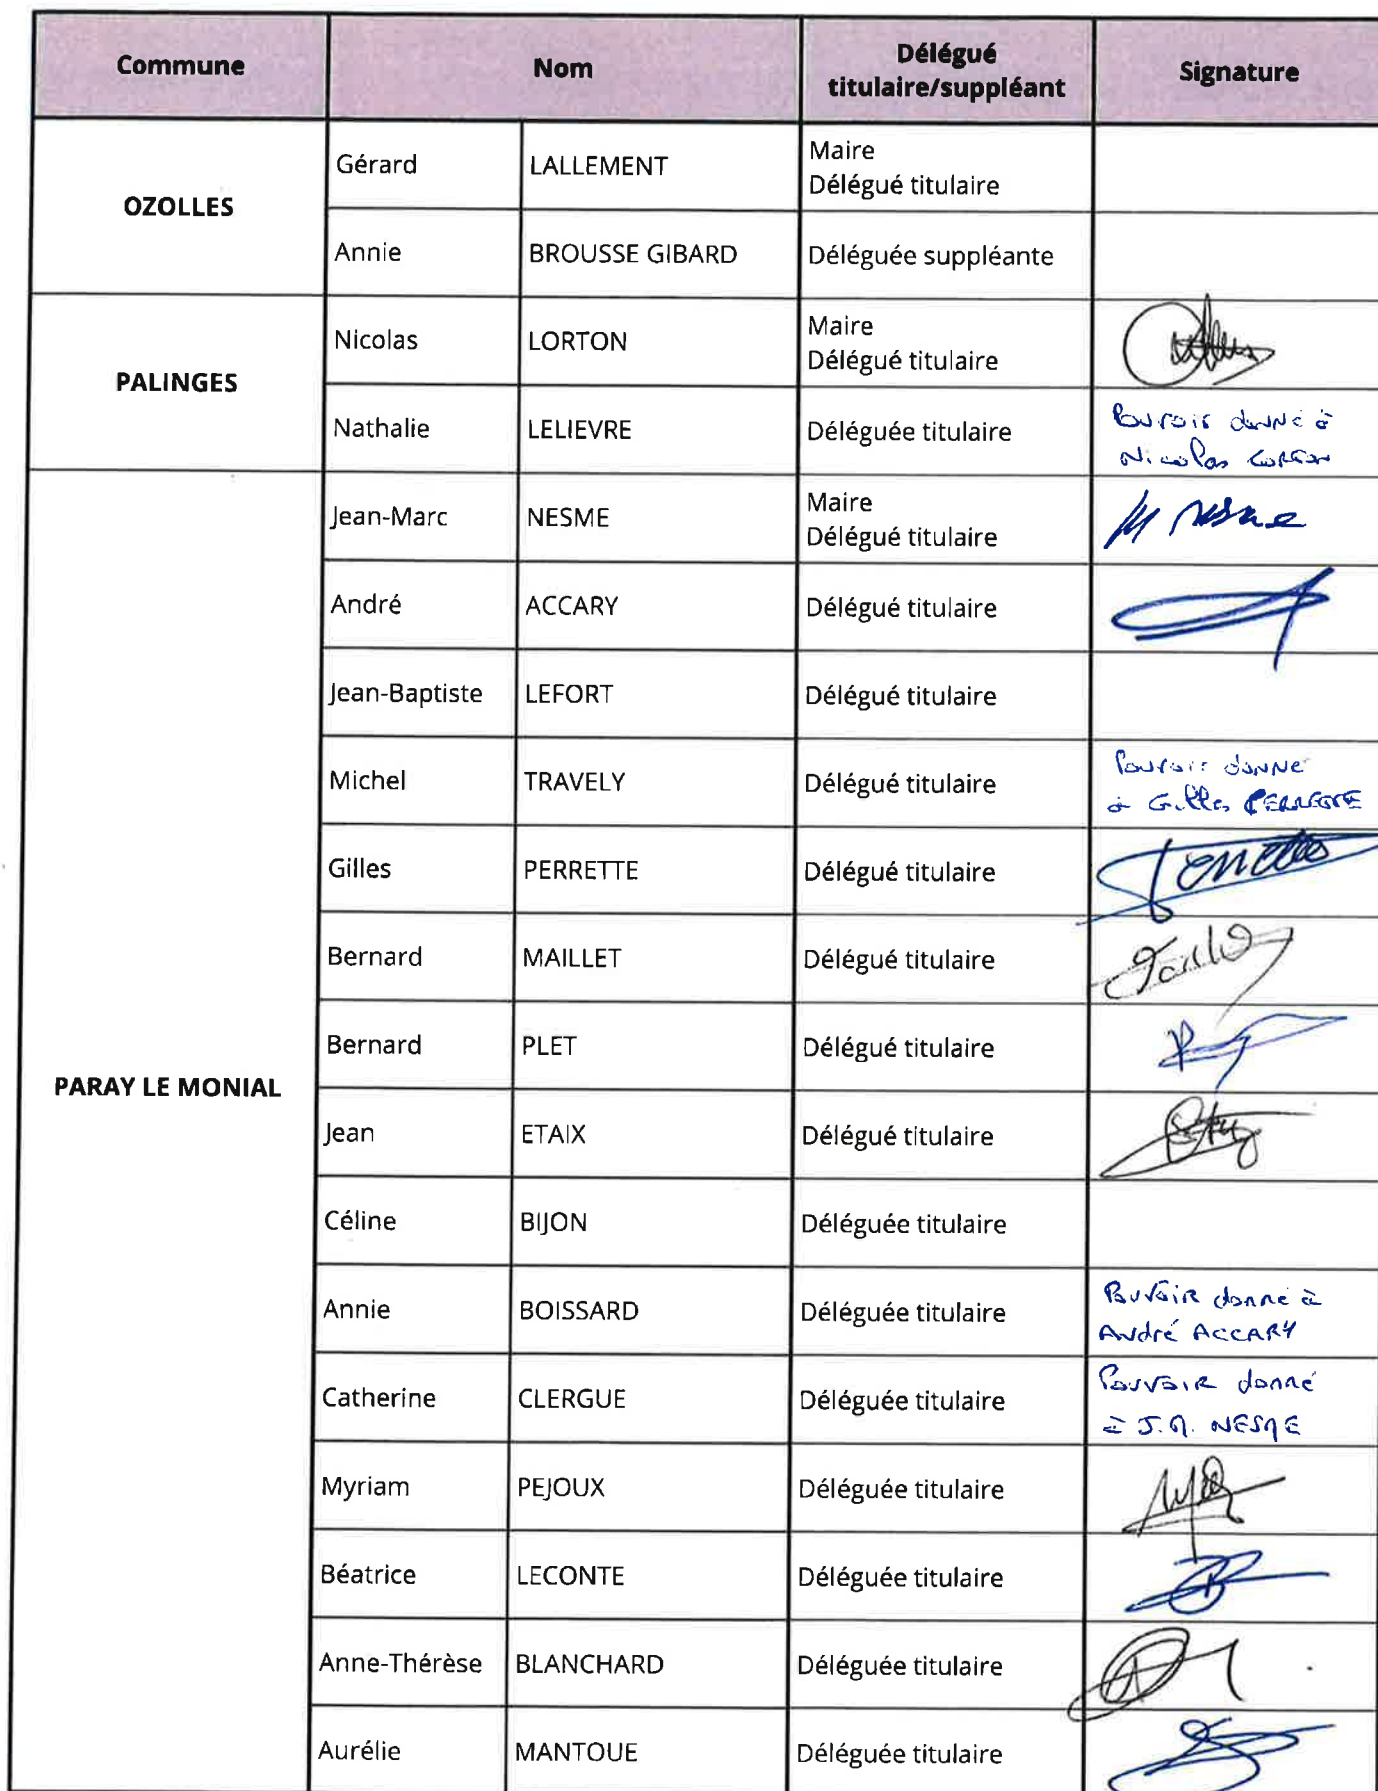 Commune Nom Délégué titulaire/suppléant Signature
OZOLLES
Gérard LALLEMENT Maire Délégué titulaire
Annie BROUSSE GIBARD Déléguée suppléante
PALINGES
Nicolas LORTON Maire Délégué titulaire
Nathalie LELIEVRE Déléguée titulaire Pouvoir donné à Nicolas LORTON
PARAY LE MONIAL
Jean-Marc NESME Maire Délégué titulaire
André ACCARY Délégué titulaire
Jean-Baptiste LEFORT Délégué titulaire
Michel TRAVELY Délégué titulaire Pouvoir donné à Gilles PERRETTE
Gilles PERRETTE Délégué titulaire
Bernard MAILLET Délégué titulaire
Bernard PLET Délégué titulaire
Jean ETAIX Délégué titulaire
Céline BIJON Déléguée titulaire
Annie BOISSARD Déléguée titulaire Pouvoir donné à André ACCARY
Catherine CLERGUE Déléguée titulaire Pouvoir donné à J.M. NESME
Myriam PEJOUX Déléguée titulaire
Béatrice LECONTE Déléguée titulaire
Anne-Thérèse BLANCHARD Déléguée titulaire
Aurélie MANTOUE Déléguée titulaire